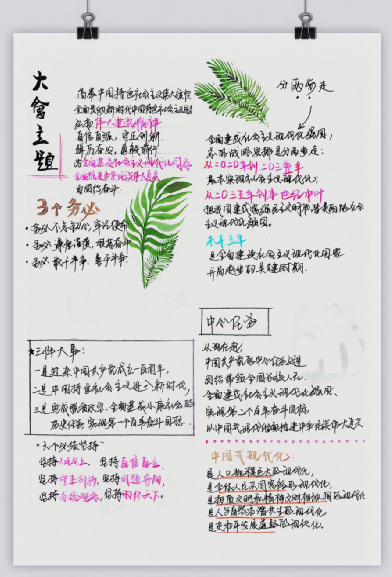 大会主题
高举中国特色社会主义伟大旗帜
全面贯彻新时代中国特色社会主义思想
弘扬伟大建党精神
自信自强、守正创新
踔厉奋发、勇毅前行
为全面建设社会主义现代化国家
全面推进中华民族伟大复兴
而团结奋斗
3个务必
·务必不忘初心、牢记使命
·务必谦虚谨慎、艰苦奋斗
·务必敢于斗争、善于斗争
分两步走
全面建成社会主义现代化强国,
总的战略安排是分两步走:
从二〇二〇年到二〇三五年
基本实现社会主义现代化;
从二〇三五年到本世纪中叶
把我国建成富强民主文明和谐美丽的社会
主义现代化强国。
未来五年
是全面建设社会主义现代化国家
开局起步的关键时期。
★三件大事:
一是迎来中国共产党成立一百周年,
二是中国特色社会主义进入新时代,
三是完成脱贫攻坚、全面建成小康社会的
历史任务,实现第一个百年奋斗目标。
"六个必须坚持"
坚持人民至上、坚持自信自立、
坚持守正创新、坚持问题导向、
坚持系统观念、坚持胸怀天下。
中心任务
从现在起,
中国共产党的中心任务就是
团结带领全国各族人民
全面建成社会主义现代化强国、
实现第二个百年奋斗目标,
以中国式现代化全面推进中华民族伟大复兴
中国式现代化:
是人口规模巨大的现代化,
是全体人民共同富裕的现代化,
是物质文明和精神文明相协调的现代化
是人与自然和谐共生的现代化,
是走和平发展道路的现代化。